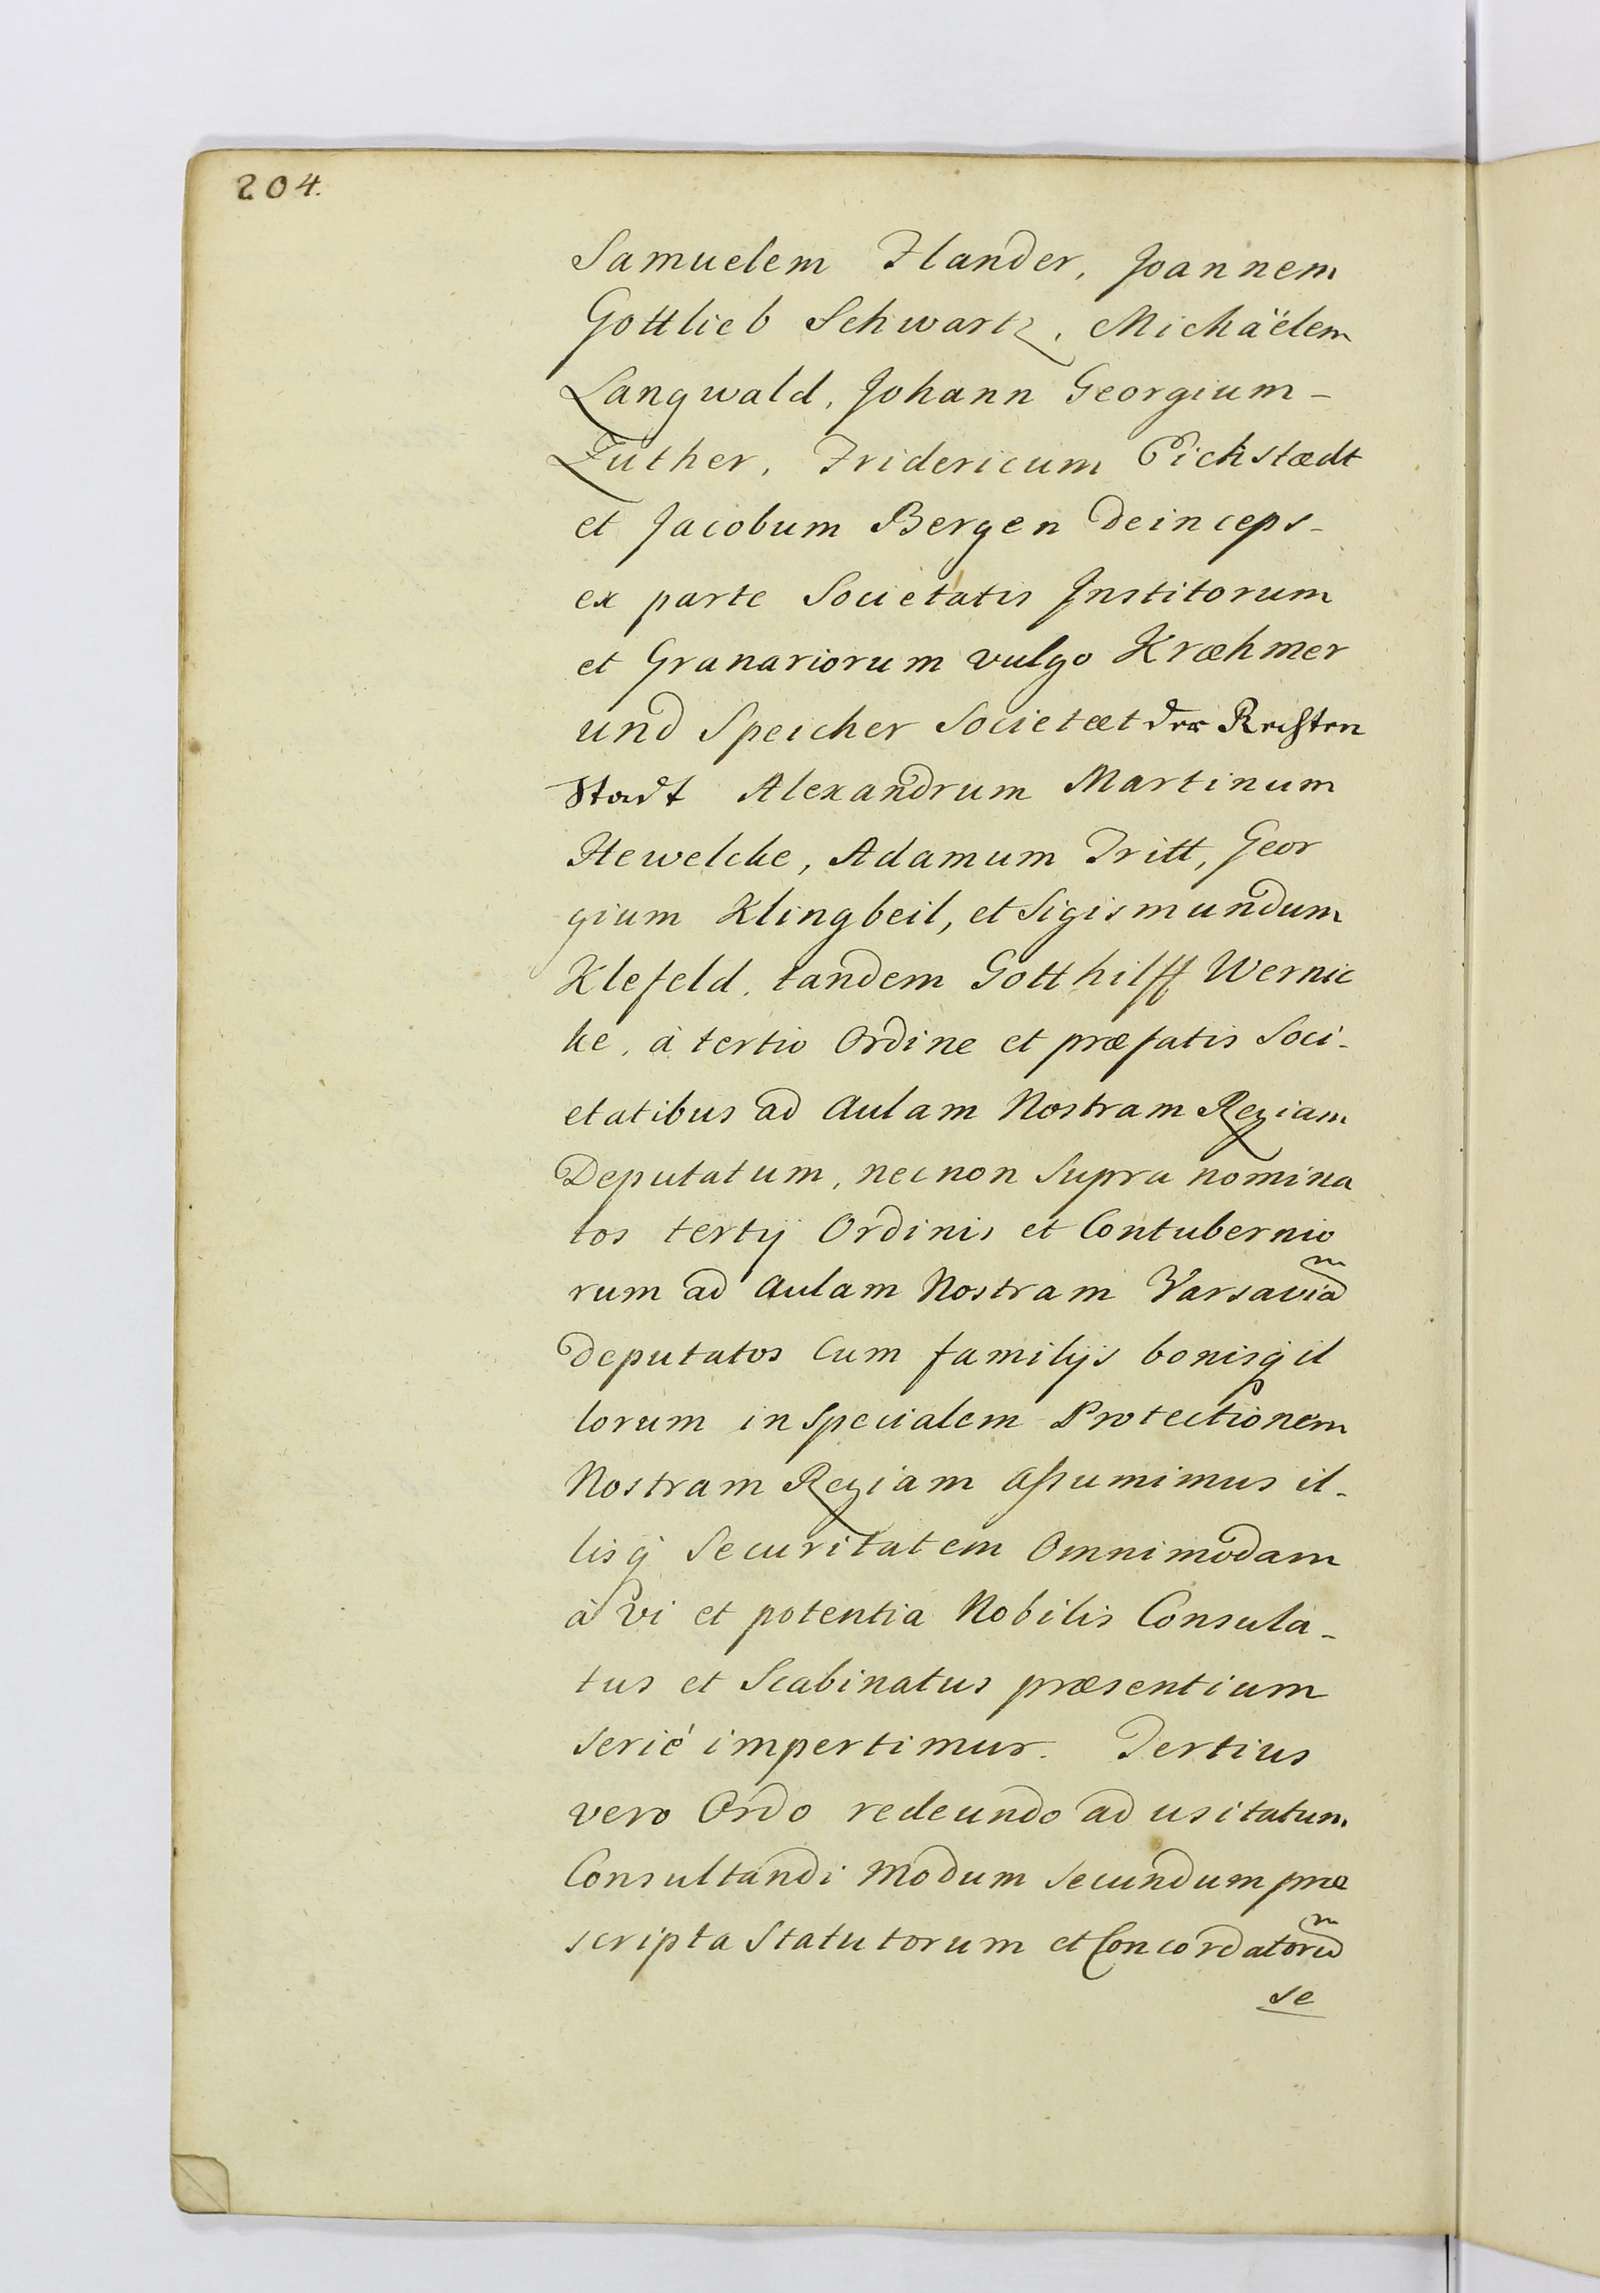 204.
Samuelem Flander, Joannem
Gottlieb Schwartz, Michäelem
Langwald, Johann Georgium-
Luther, Fridericum Eichstædt
et Jacobum Bergen deinceps-
ex parte Societatis Institorum
et Granariorum vulgo Kræhmer
und Speicher Societæt der Rechten
Stadt Alexandrum Martinum
Hewelcke, Adamum Tritt, Geor
gium Klingbeil, et Sigismundum
Klefeld, tandem Gotthilff Wernic
ke, à tertio Ordine et præfatis Soci-
etatibus ad Aulam Nostram Regiam
Deputatum, nec non supra nomina
tos tertij Ordinis et Contubernio
rum ad Aulam Nostram Varsaviam
deputatos cum familijs bonisq̃ il
lorum in specialem Protectionem
Nostram Regiam aſsumimus il-
lisq̃ securitatem omnimodam
à vi et potentia Nobilis Consula-
tus et Scabinatus præsentium
serié impertimur. Tertius
vero Ordo redeundo ad usitatum
Consultandi modum secundum præ
scripta Statutorum et Concordatorum
se